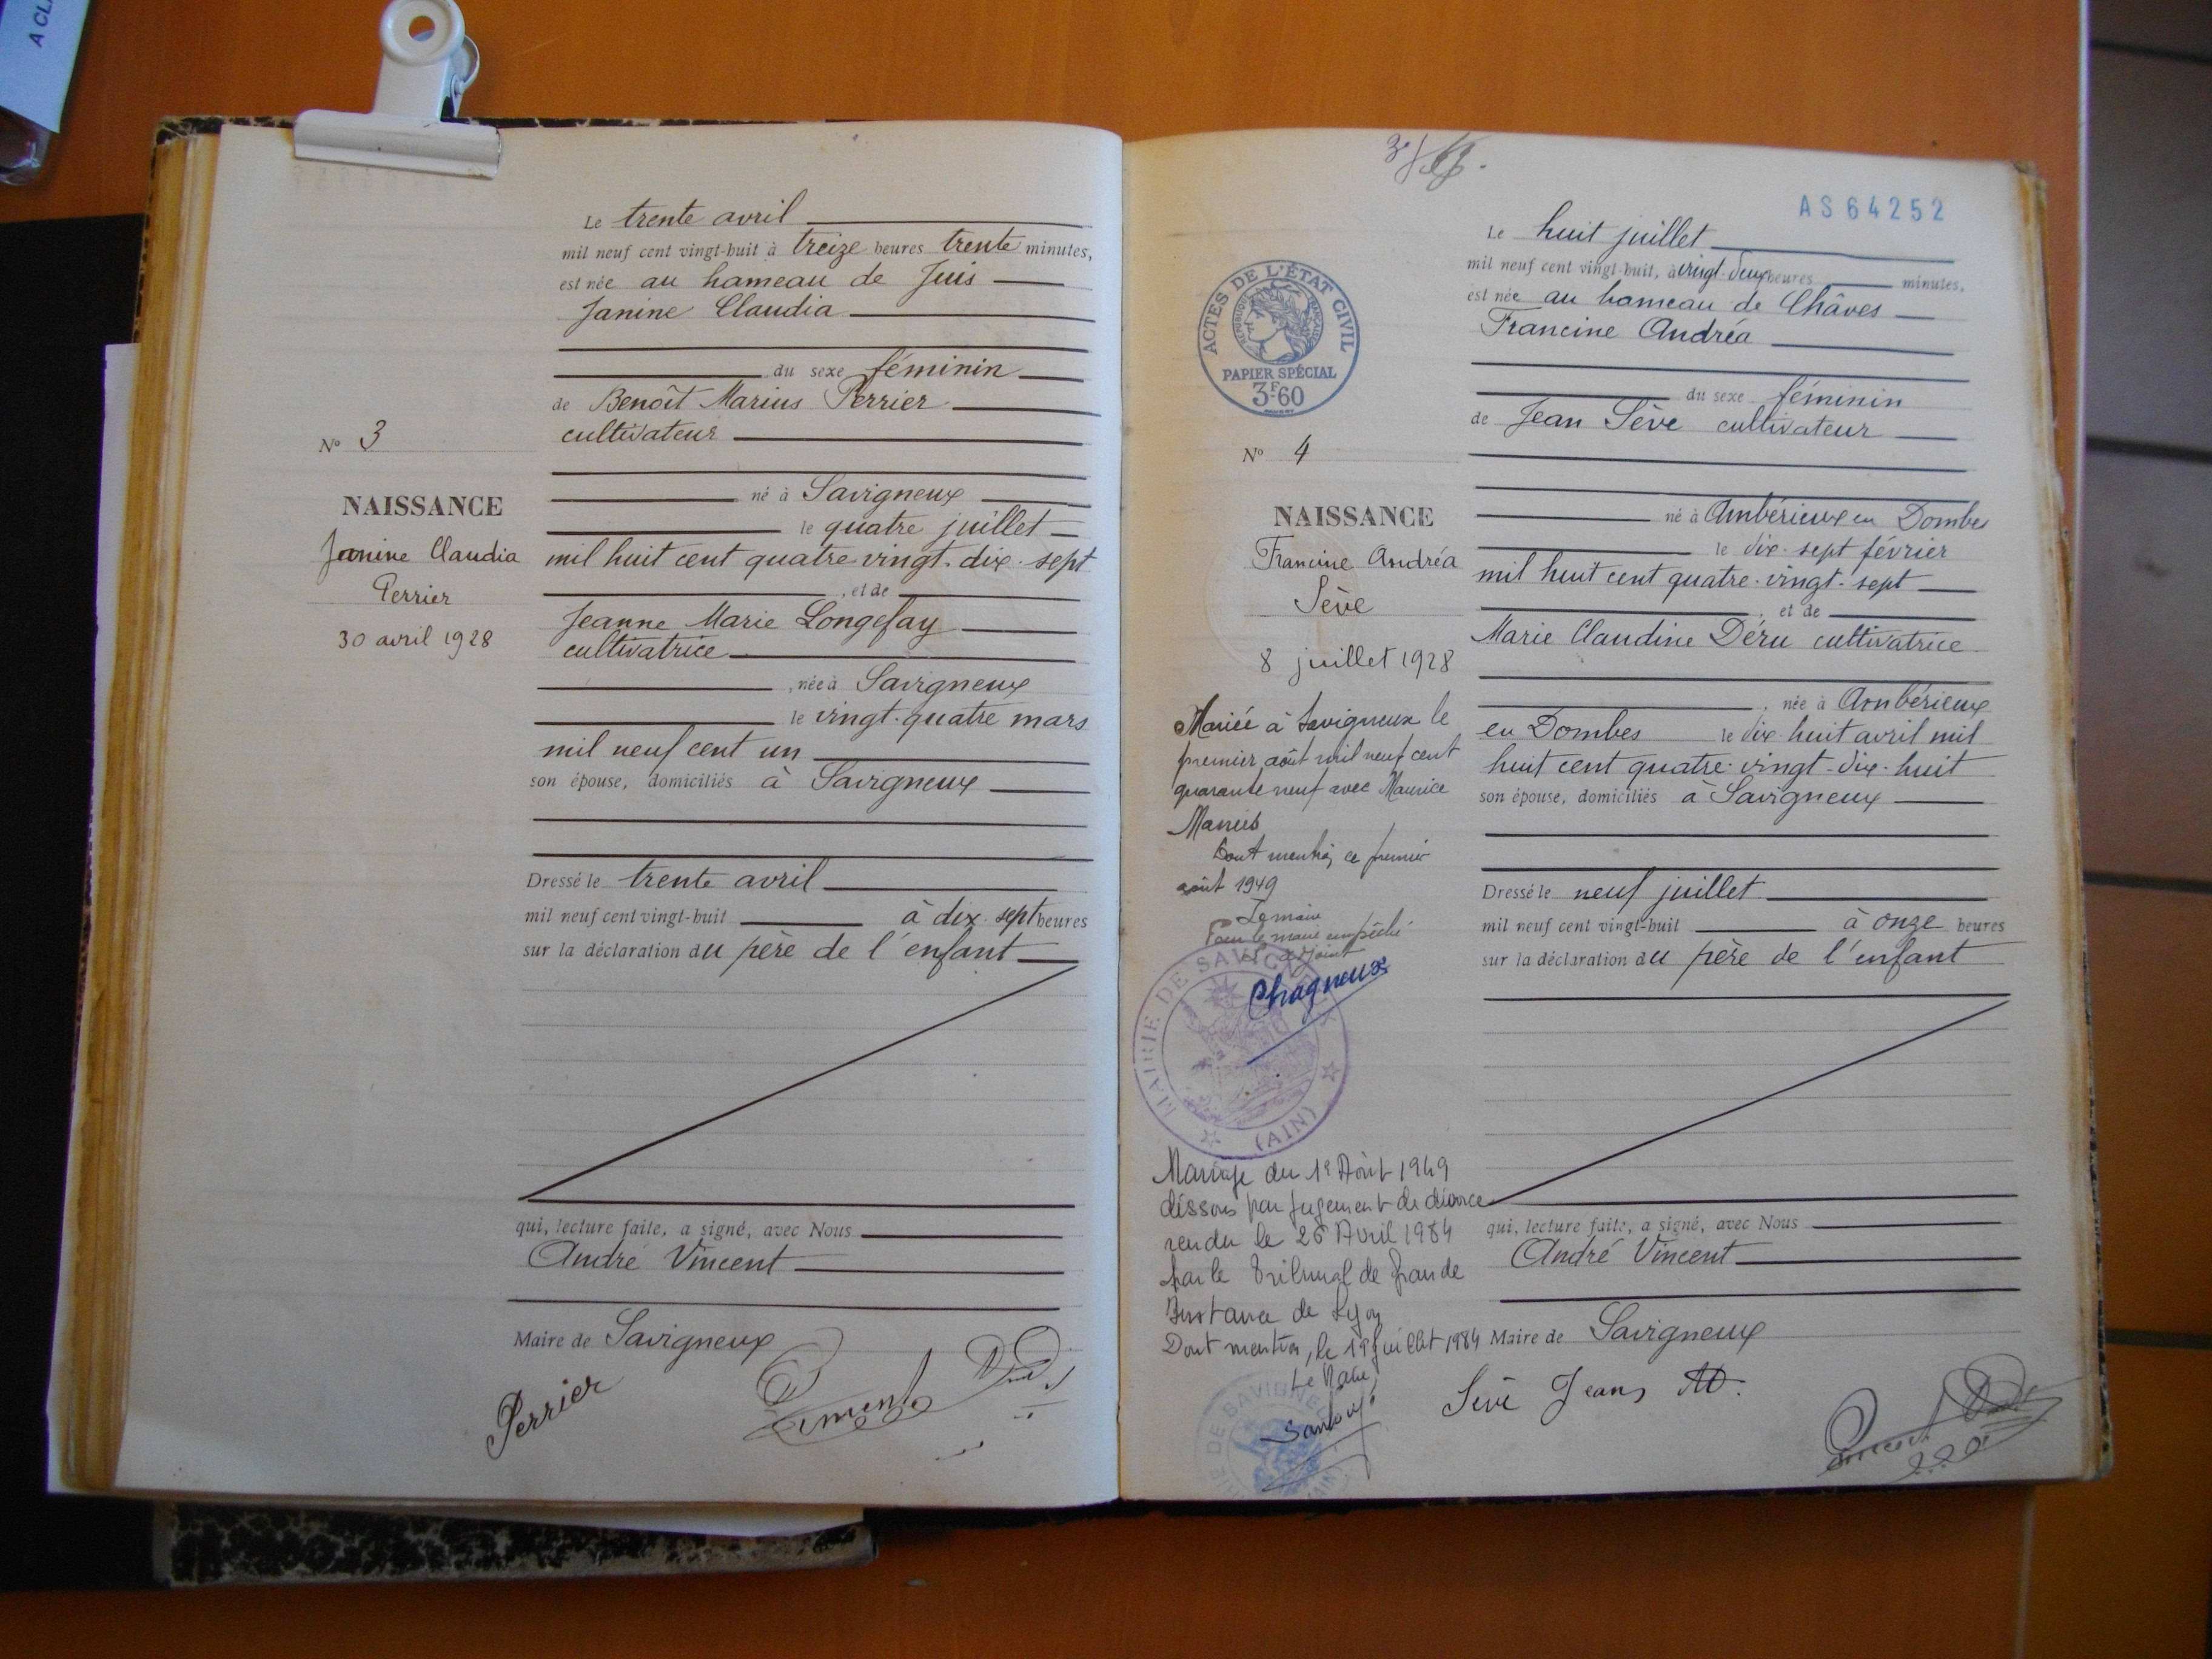 A CLA
Le trente avril
mil neuf cent vingt-huit à treize heures trente minutes,
est née au hameau de Juis
Janine Claudia
du sexe féminin
de Benoît Marius Perrier
cultivateur
né à Savigneux
le quatre juillet
mil huit cent quatre vingt-dix-sept
, et de
Jeanne Marie Longefay
cultivatrice
, née à Savigneux
le vingt-quatre mars
mil neuf cent un
son épouse, domiciliés à Savigneux
Dressé le trente avril
mil neuf cent vingt-huit à dix-sept heures
sur la déclaration du père de l'enfant
qui, lecture faite, a signé, avec Nous
André Vincent
Maire de Savigneux
Perrier
Vincent
No 3
NAISSANCE
Janine Claudia
Perrier
30 avril 1928
AS 64252
Le huit juillet
mil neuf cent vingt-huit, à vingt-deux heures minutes,
est née au hameau de Châves
Francine Andréa
du sexe féminin
de Jean Sève cultivateur
né à Ambérieux en Dombes
le dix-sept février
mil huit cent quatre-vingt-sept
, et de
Marie Claudine Déru cultivatrice
, née à Ambérieux
en Dombes le dix huit avril mil
huit cent quatre-vingt-dix-huit
son épouse, domiciliés à Savigneux
Dressé le neuf juillet
mil neuf cent vingt-huit à onze heures
sur la déclaration du père de l'enfant
qui, lecture faite, a signé, avec Nous
André Vincent
Maire de Savigneux
Sève Jean
ACTES DE L'ÉTAT CIVIL
RÉPUBLIQUE FRANÇAISE
PAPIER SPÉCIAL
3F60
No 4
NAISSANCE
Francine Andréa
Sève
8 juillet 1928
Mariée à Savigneux le
premier août mil neuf cent
quarante neuf avec Maurice
Dont mention ce premier
août 1949
Le maire
Pour le maire empêché
L'adjoint
Chagneux
MAIRIE DE SAVIGNEUX
(AIN)
Mariage du 1er Août 1949
dissous par jugement de divorce
rendu le 26 Avril 1984
par le Tribunal de Grande
Instance de Lyon
Dont mention, le 19 Juillet 1984
Le Maire,